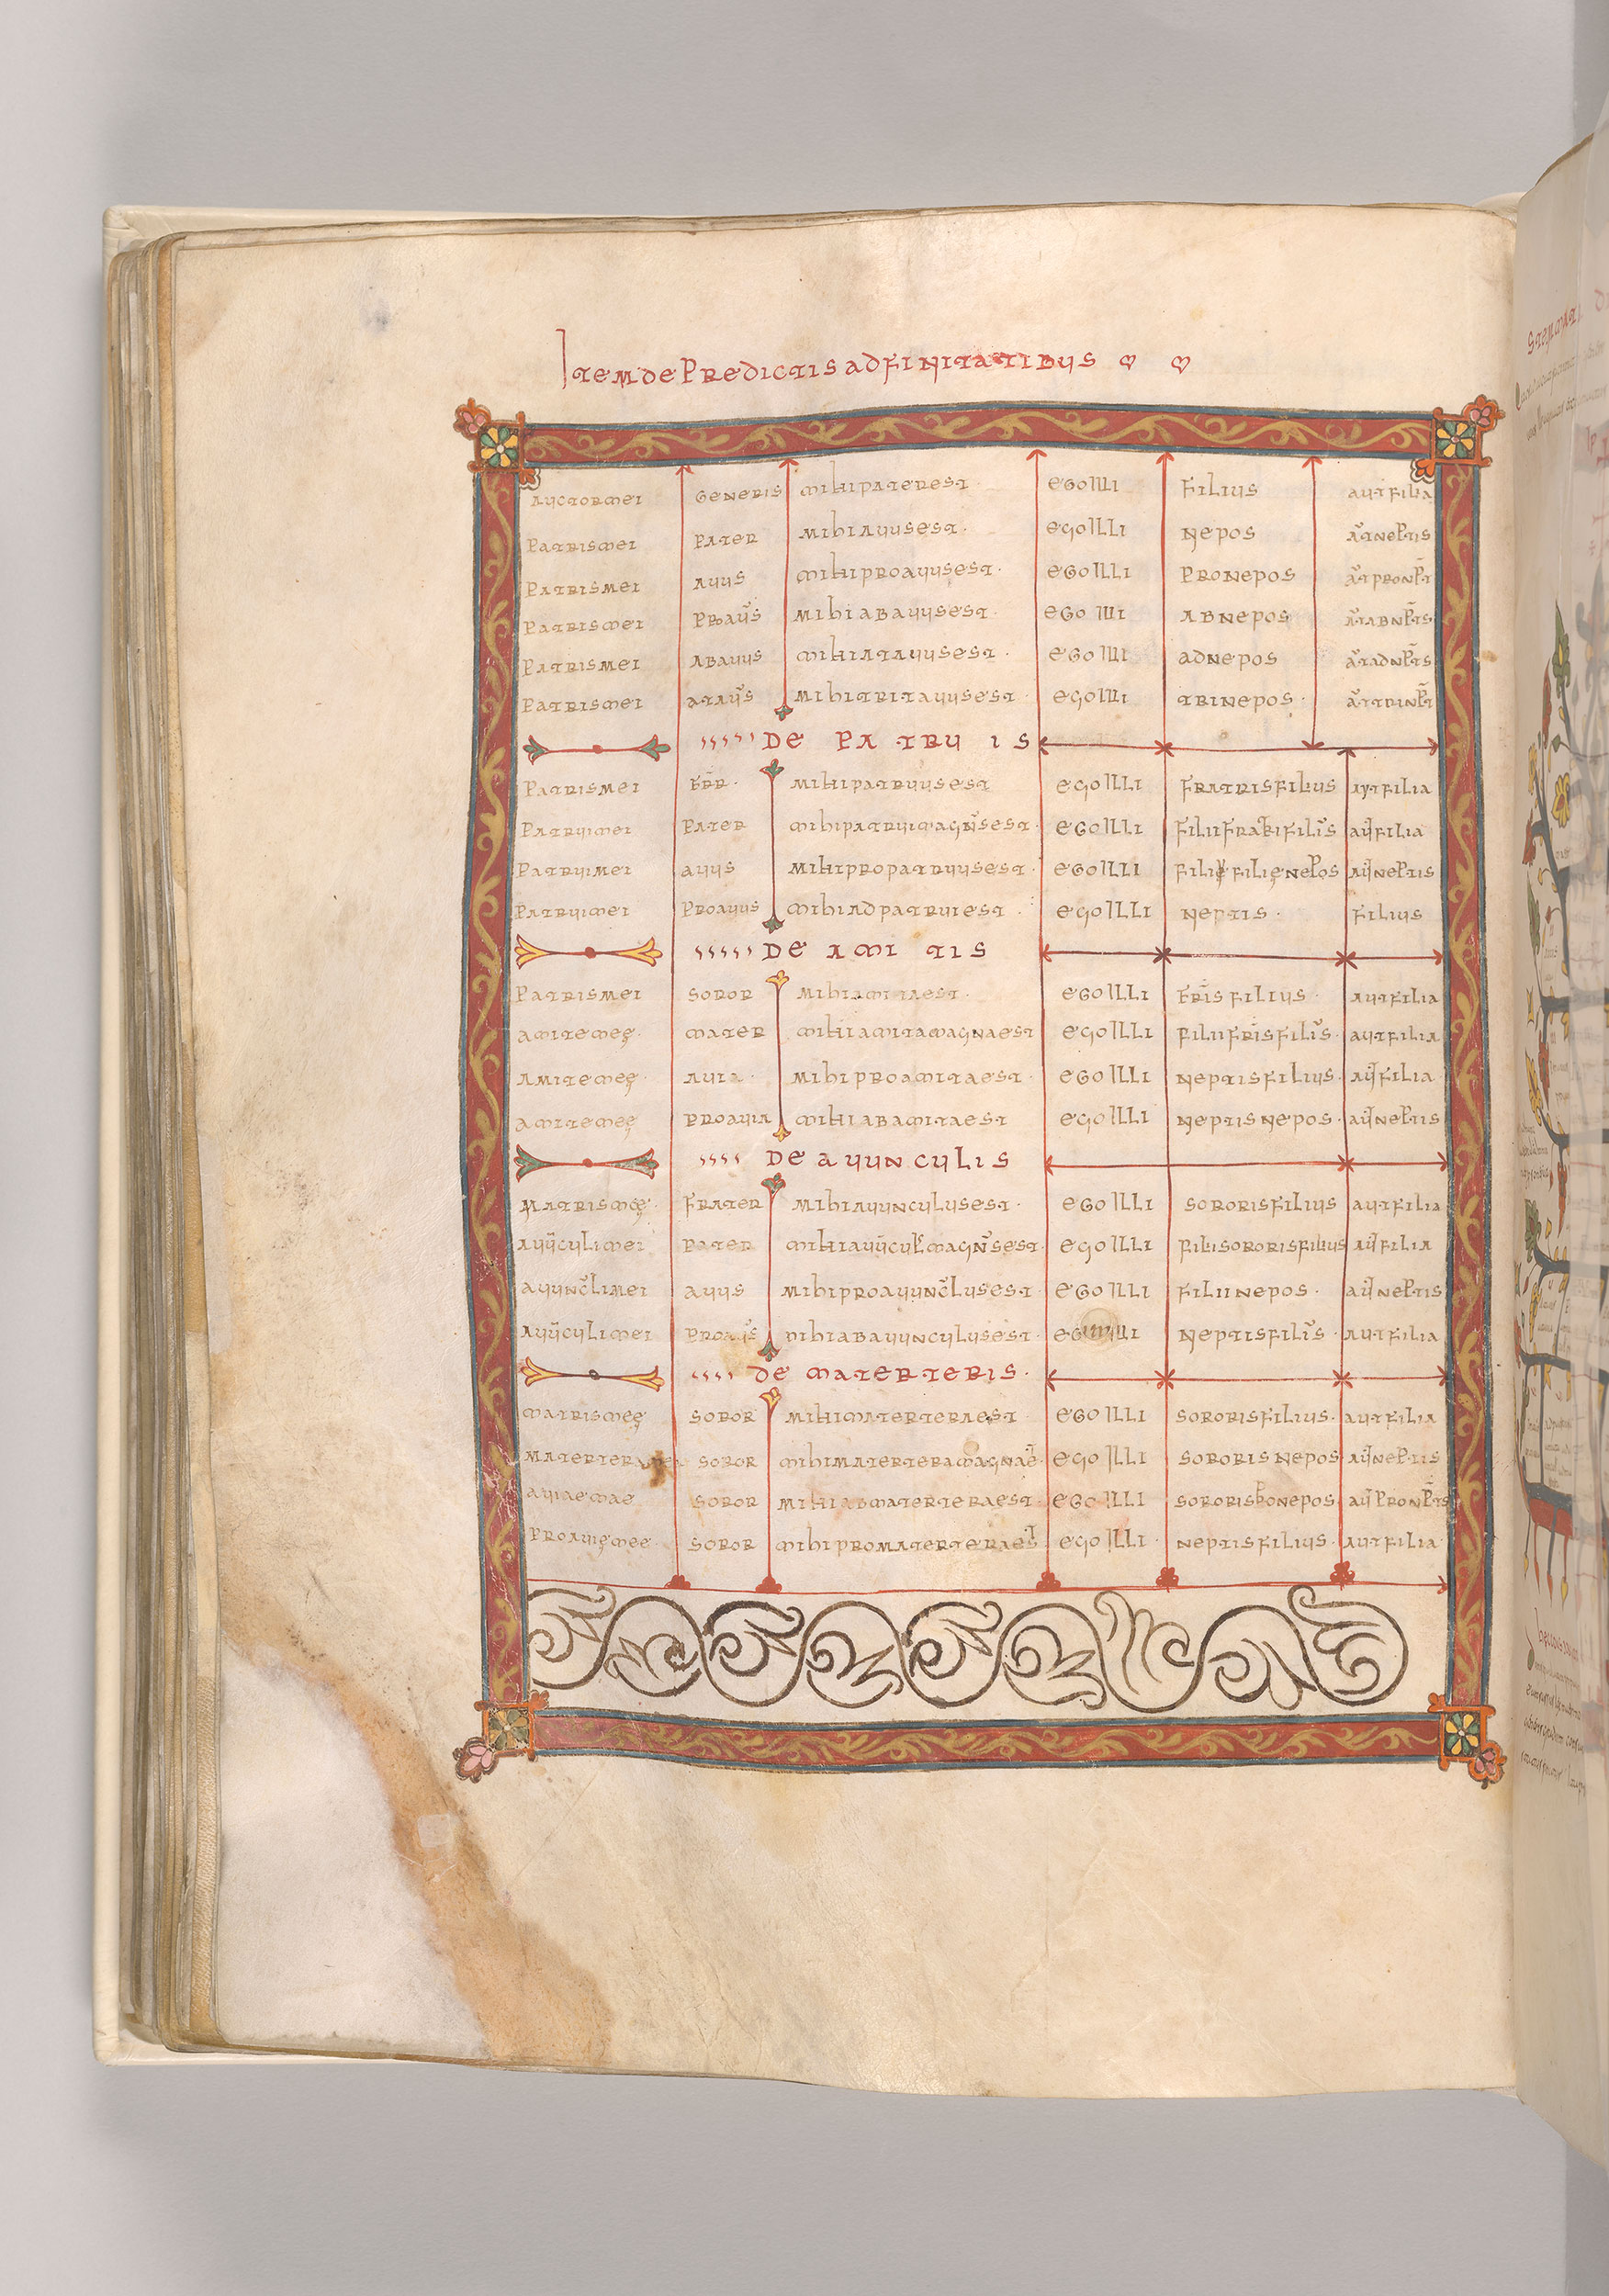 Item de predictis adfinitatibus
auctor mei generis mihi pater est ego illi filius aut filia
patris mei pater mihi auus est ego illi nepos aūt neptis
patris mei auus mihi proauus est ego illi pronepos aūt pronp̄t
patris mei proaūs mihi abauus est ego illi abnepos aūt abnp̄tis
patris mei abauus mihi atauus est ego illi adnepos aūt adnp̄tis
patris mei ataūs mihi tritauus est ego illi trinepos aūt trinp̄t
DE PATRUIS
patris mei fr̄r mihi patruus est ego illi fratris filius aut filia
patrui mei pater mihi patrui magn̄s est ego illi filii fratri filīs aut̄ filia
patrui mei auus mihi propatruus est ego illi filię filię nepos aut̄ neptis
patrui mei proauus mihi adpatrui est ego illi neptis filius
DE AMITIS
patris mei soror mihi amita est ego illi fr̄is filius aut filia
amite meę mater mihi amita magna est ego illi filii fr̄is filīs aut filia
amite meę auia mihi proamita est ego illi neptis filius aut̄ filia
amite meę proauia mihi abamita est ego illi neptis nepos aut̄ neptis
DE AUUNCULIS
matris meę frater mihi auunculus est ego illi sororis filius aut filia
auūculi mei pater mihi auūcul magn̄s est ego illi fili sororis filius aut̄ filia
auunc̄li mei auus mihi proauunc̄lus est ego illi filii nepos aut̄ neptis
auūculi mei proaūs mihi abauunculus est ego illi neptis filīs aut filia
DE MATERTERIS
matris meę soror mihi matertera est ego illi sororis filius aut filia
soror mihi matertera magna ē ego illi sororis nepos aut̄ neptis
auiae mae soror mihi abmatertera est ego illi sororis ponepos aut̄ pronp̄tis
proauię meę soror mihi promatertera est ego illi neptis filius aut filia